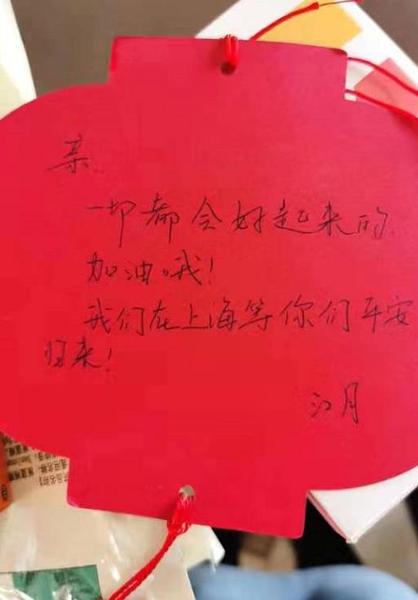 亲
一切都会好起来的
加油哦！
我们在上海等你们平安
归来！
江月